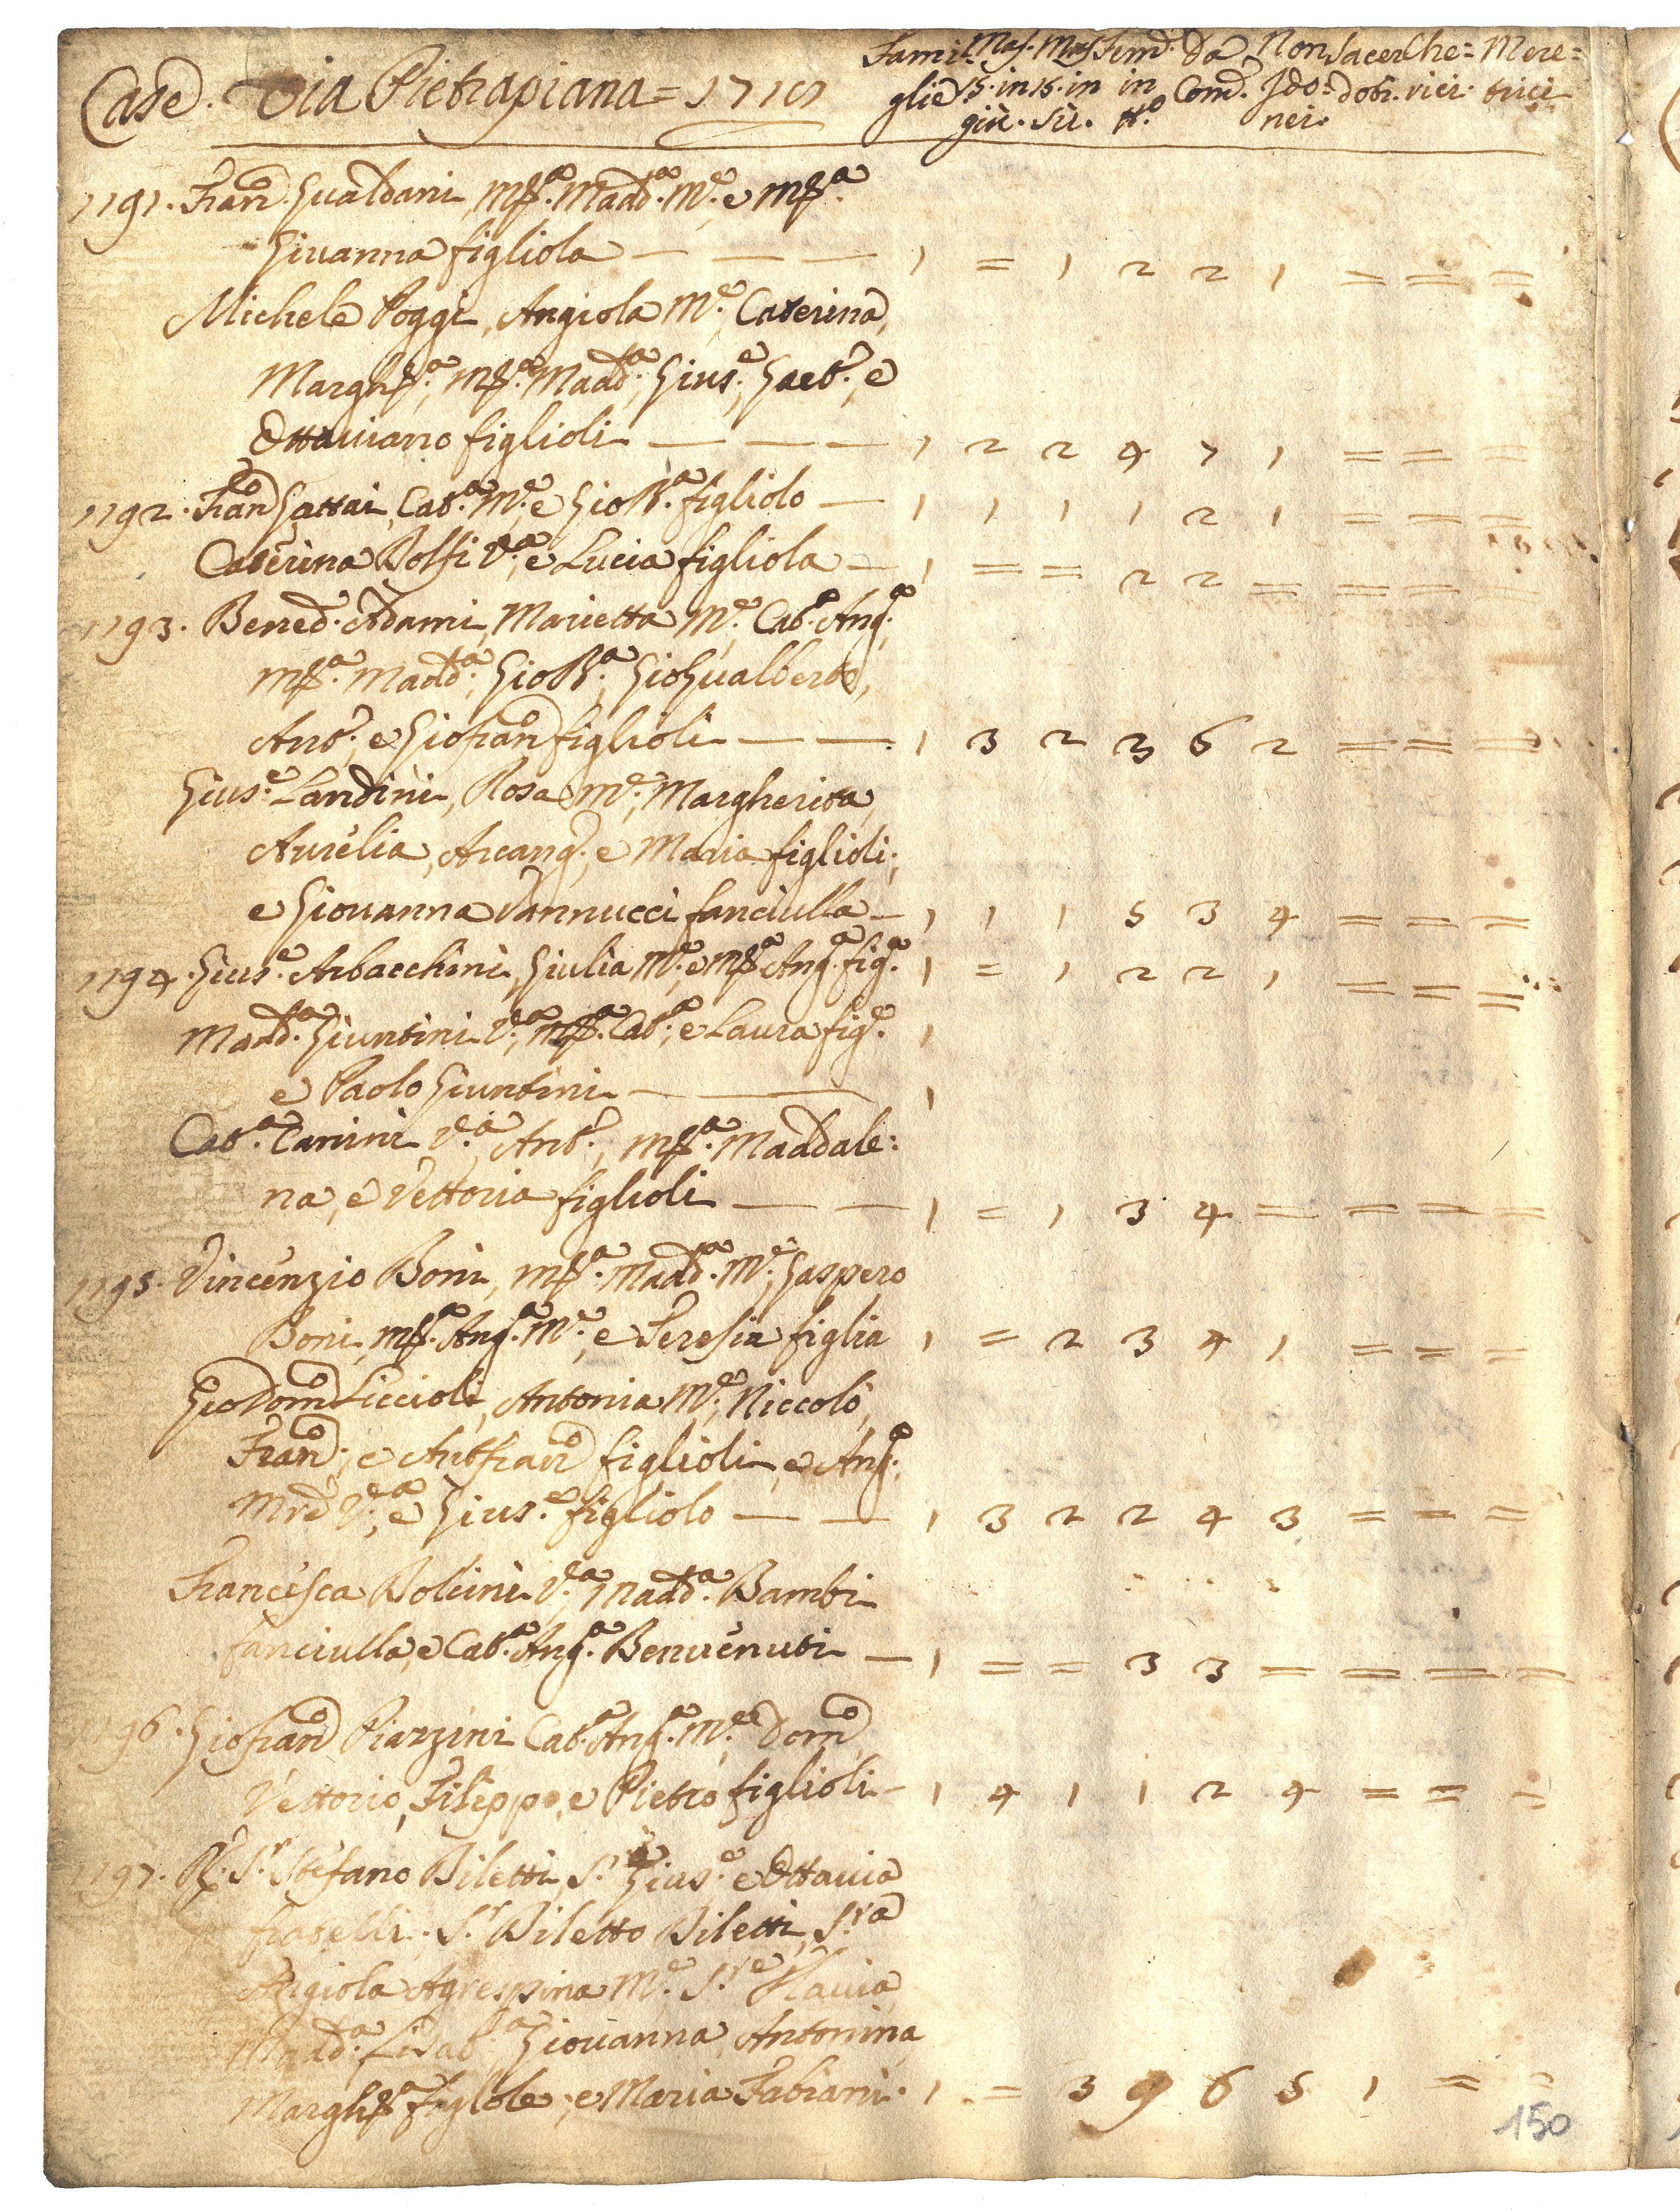 Case. Via Pietrapiana =
Fami: Mas. Mas Fem. Da Non Sacer Che= Mere=
glie 15. in 15. in in Com. Ido= doti. rici. trici
giù. Sù. N.o nei.
1191. Fran.o Gualdani, M.a Madd.a M.e, e M.a
Giuanna figliola — — — 1 = 1 2 2 1 = = =
Michele Poggi, Angiola M.e, Caterina,
Margh.a, M.a Madd.a, Gius.e, Gaet.o, e
Ottauiano figlioli — — — 1 2 2 4 7 1 = = =
1192. Fran.o Gattai, Cat.a M.e, e Gio B.a figliolo — 1 1 1 1 2 1 = = =
Caterina Dolfi V.a, e Lucia figliola — 1 = = 2 2 = = = =
1193. Bened.o Adami, Marietta M.e, Cat.a Ang.a
M.a Madd.a, Gio B.a, Gio Gualberto,
Ant.o, e Gio Fran.o figlioli — — 1 3 2 3 6 2 = = =
Gius.e Landini, Rosa M.e, Margherita,
Aurelia, Arcang.o, e Maria figlioli;
e Giouanna Vannucci fanciulla — 1 1 1 5 3 4 = = =
1194. Gius.e Arbacchini, Giulia M.e, e M.a Ang.a fig.a 1 = 1 2 2 1 = = =
Madd.a Giuntini V.a, M.a Cat.a, e Laura fig.e 1
e Paolo Giuntini — — 1
Cat.a Tanini V.a, Ant.o, M.a Maddale:
na, e Vettoria figlioli — — 1 = 1 3 4 = = = =
1195. Vincenzio Boni, M.a Madd.a M.e, Gaspero
Boni, M.a Ang.a M.e, e Teresia figlia 1 = 2 3 4 1 = = =
Gio Dom.o Liccioli, Antonia M.e, Niccolò,
Fran.o, e Ant Fran.o figlioli, e Ang.a
V.a, e Gius.e figliolo — — 1 3 2 2 4 3 = = =
Francesca Dolcini V.a, Madd.a Bambi
fanciulla, e Cat.a Ang.a Benuenuti — 1 = = 3 3 = = = =
1196. Gio Fran.o Piazzini Cat.a Ang.a M.e, Dom.o
Vettorio, Filippo, e Pietro figlioli — 1 4 1 1 2 4 = = =
1197. R. S.r Stefano Biletti, S.r Gius.e e Ottauia
fratelli. S.r Biletto Biletti, S.ra
Angiola Agrespina M.e, S.re Flauia
Madd.a Giouanna, Antonina,
Margh.a figliole, e Maria Fabiani. 1 = 3 9 6 5 1 = =
150